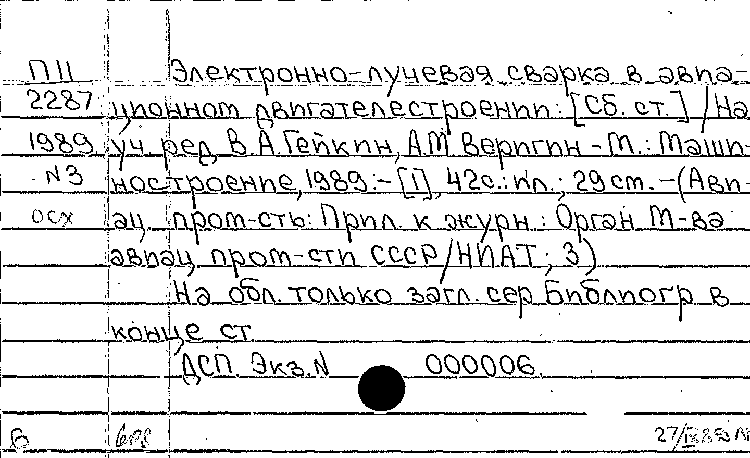 П11 Электронно-лучевая сварка в авиа-
2287 ционном двигателестроении: [Сб. ст.] / На-
1989 уч. ред. В.А. Гейкин, А.М. Веригин - М.: Маши-
N3 ностроение, 1989. - [1], 42с.: ил.; 29 cm. - (Ави-
осх ац. пром-сть: Прил. к журн.: Орган М-ва
авиац. пром-сти СССР/НИАТ; 3)
На обл. только загл. сер. Библиогр. в
конце ст
ДСП. Экз. N 000006.
Б